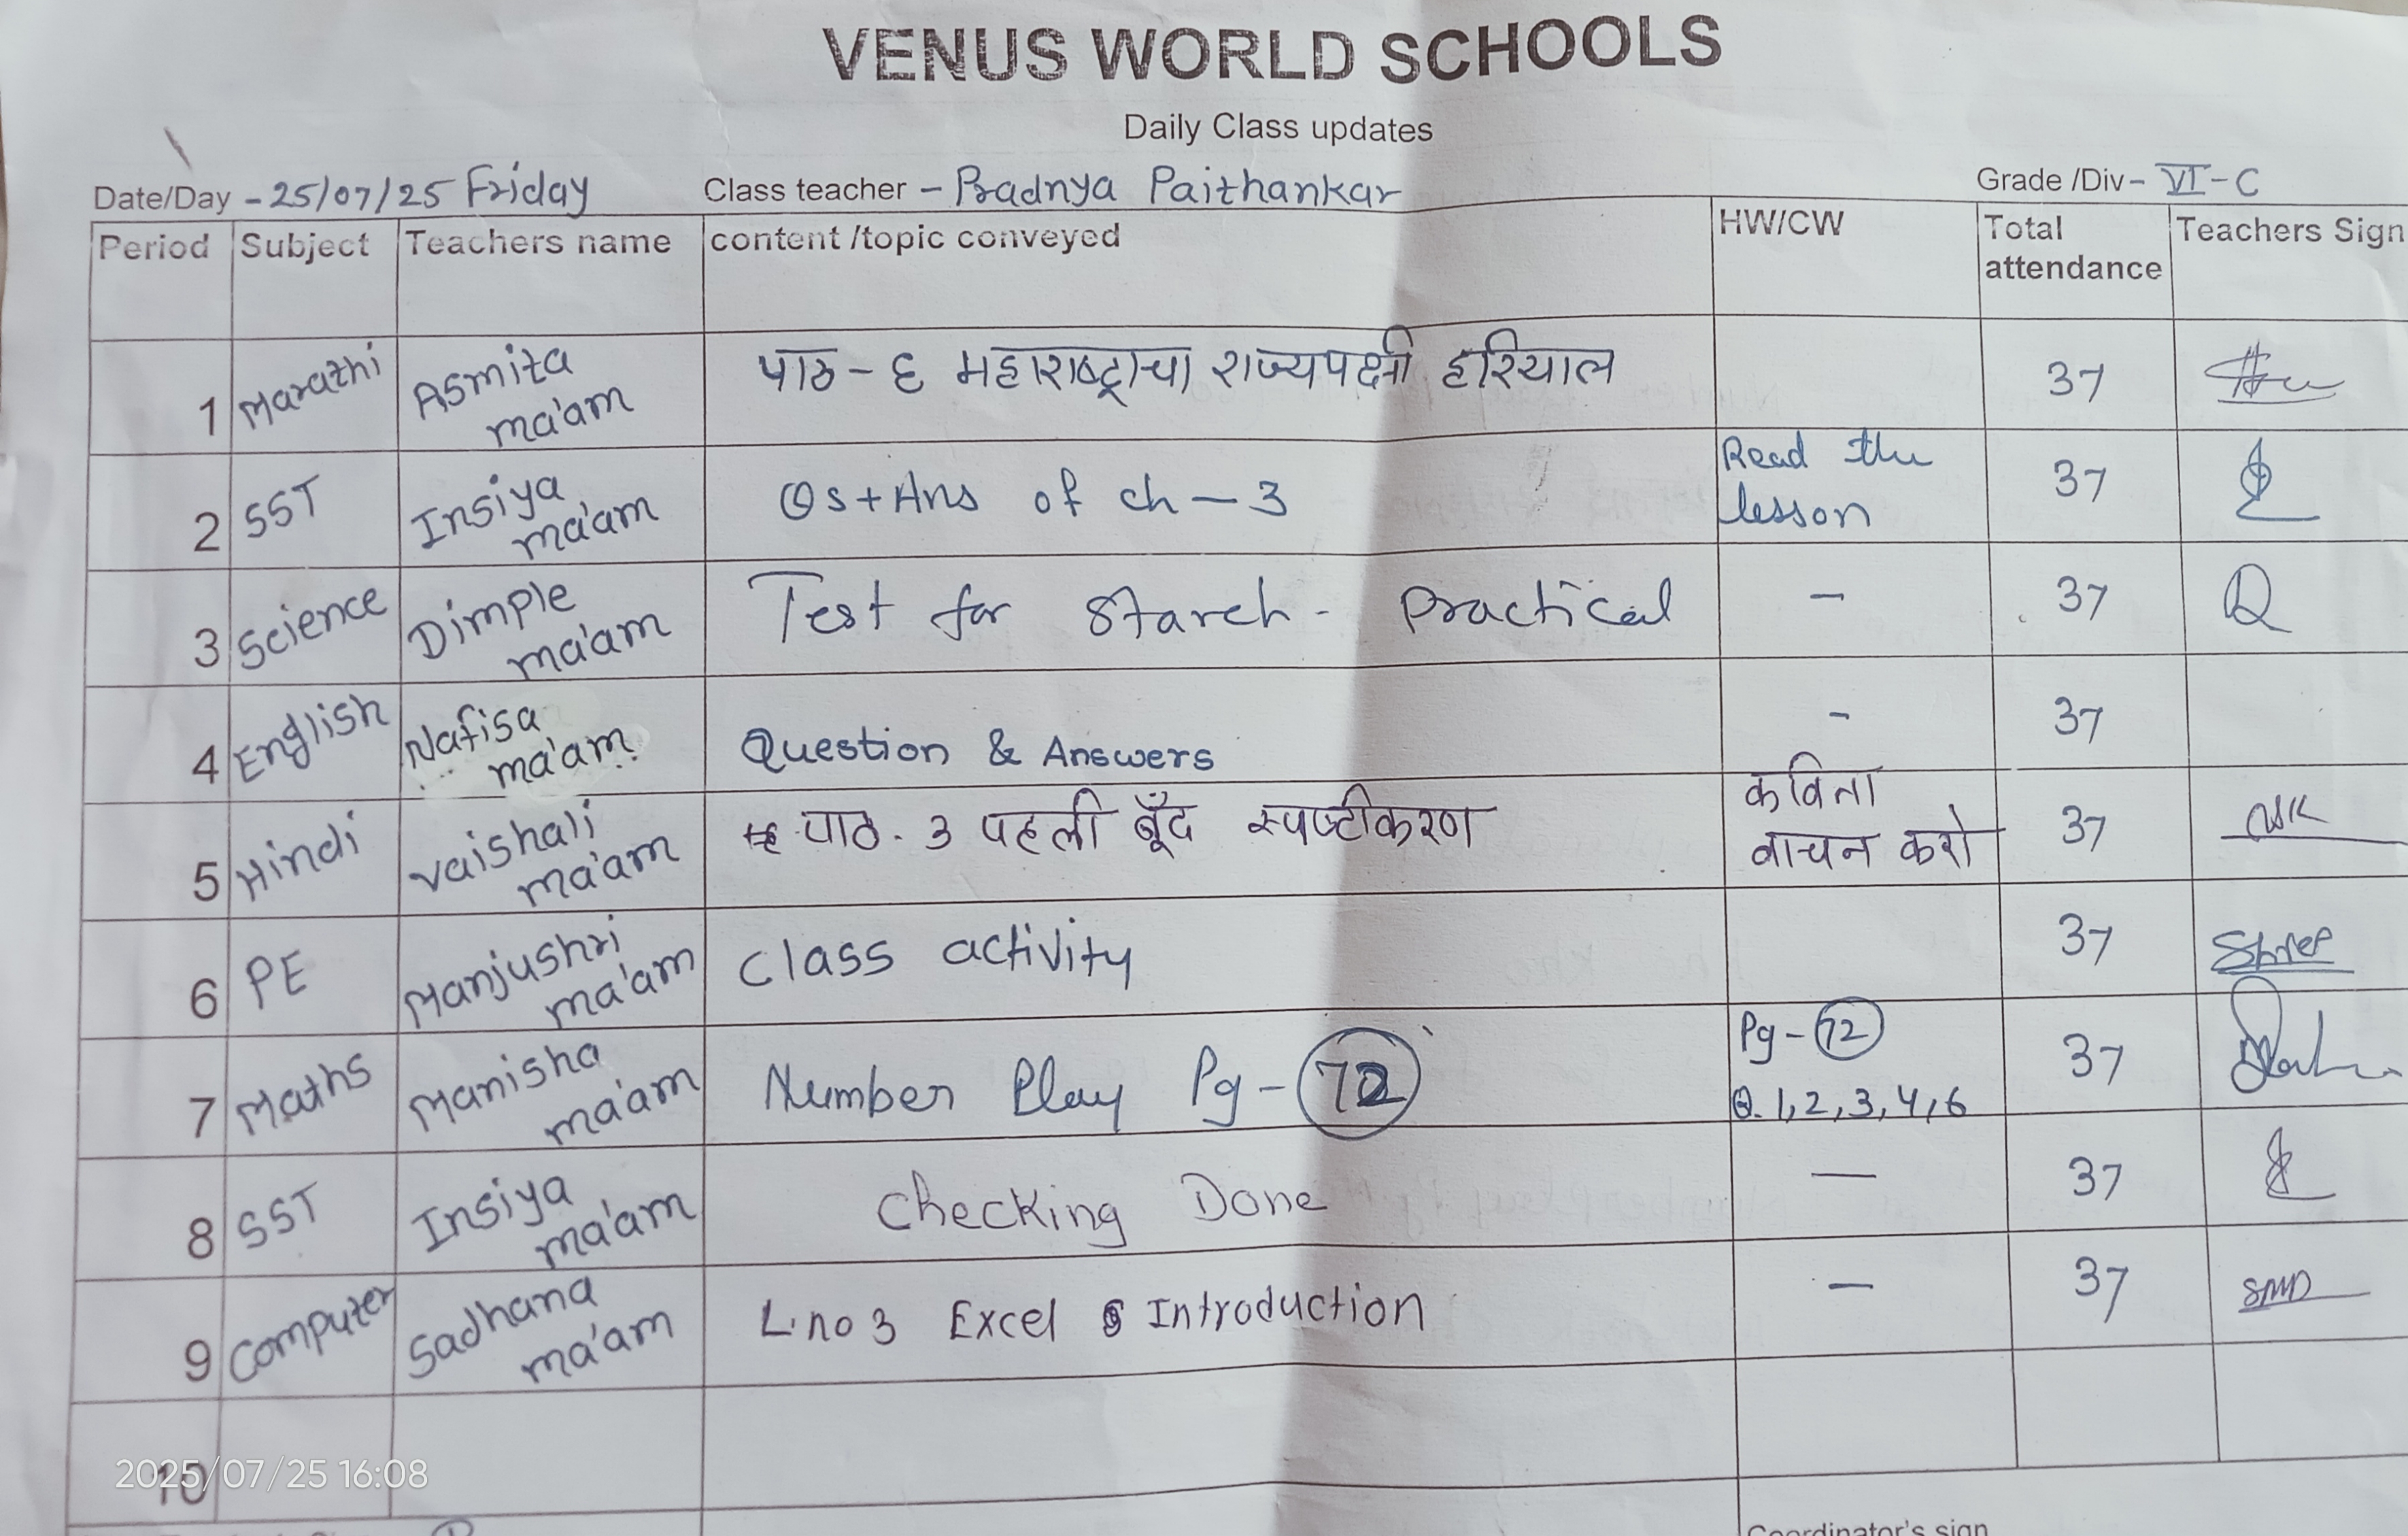 VENUS WORLD SCHOOLS
Daily Class updates
Date/Day - 25/07/25 Friday Class teacher - Pradnya Paithankar Grade /Div - VI - C
Period Subject Teachers name content /topic conveyed HW/CW Total attendance Teachers Sign
1 Marathi Asmita ma'am पाठ - ६ महाराष्ट्राचा राज्यपक्षी हरियाल 37
2 SST Insiya ma'am Qs + Ans of ch - 3 Read the lesson 37
3 Science Dimple ma'am Test for Starch - Practical - 37
4 English Nafisa ma'am Question & Answers - 37
5 Hindi Vaishali ma'am पाठ. 3 पहली बूँद स्पष्टीकरण कविता वाचन करो 37
6 PE Manjushri ma'am Class activity 37 Shree
7 Maths Manisha ma'am Number Play Pg - 72 Pg - 72 Q. 1, 2, 3, 4, 6 37
8 SST Insiya ma'am Checking Done — 37
9 Computer Sadhana ma'am L.no 3 Excel Introduction — 37 SMD
10
2025/07/25 16:08
Coordinator's sign